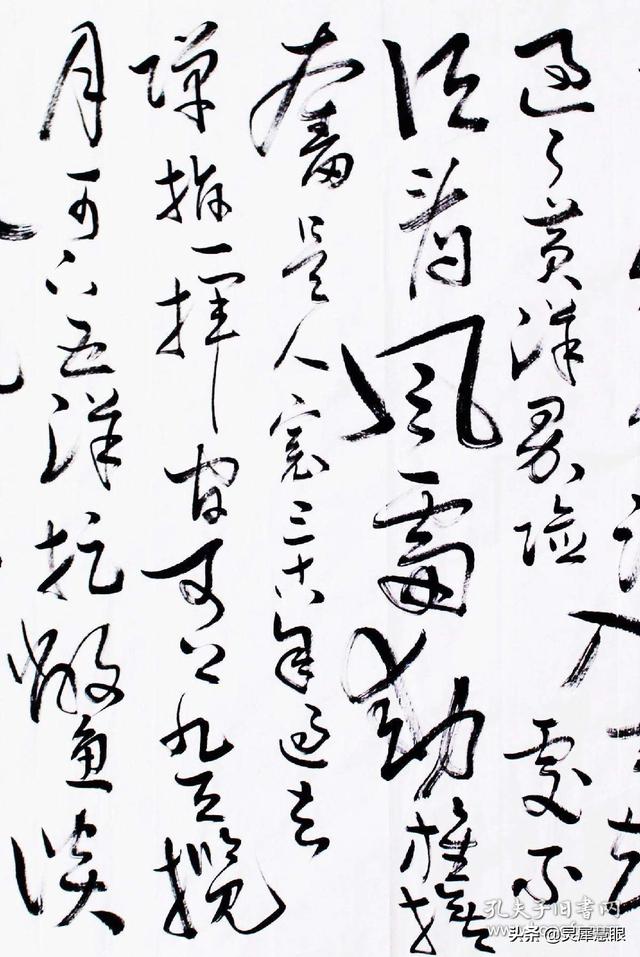 过了黄洋界险处不
须看风雷动旌旗
奋是人寰三十八年过去
弹指一挥间可上九天揽
月可下五洋捉鳖谈
孔夫子旧书网
头条@灵犀慧眼